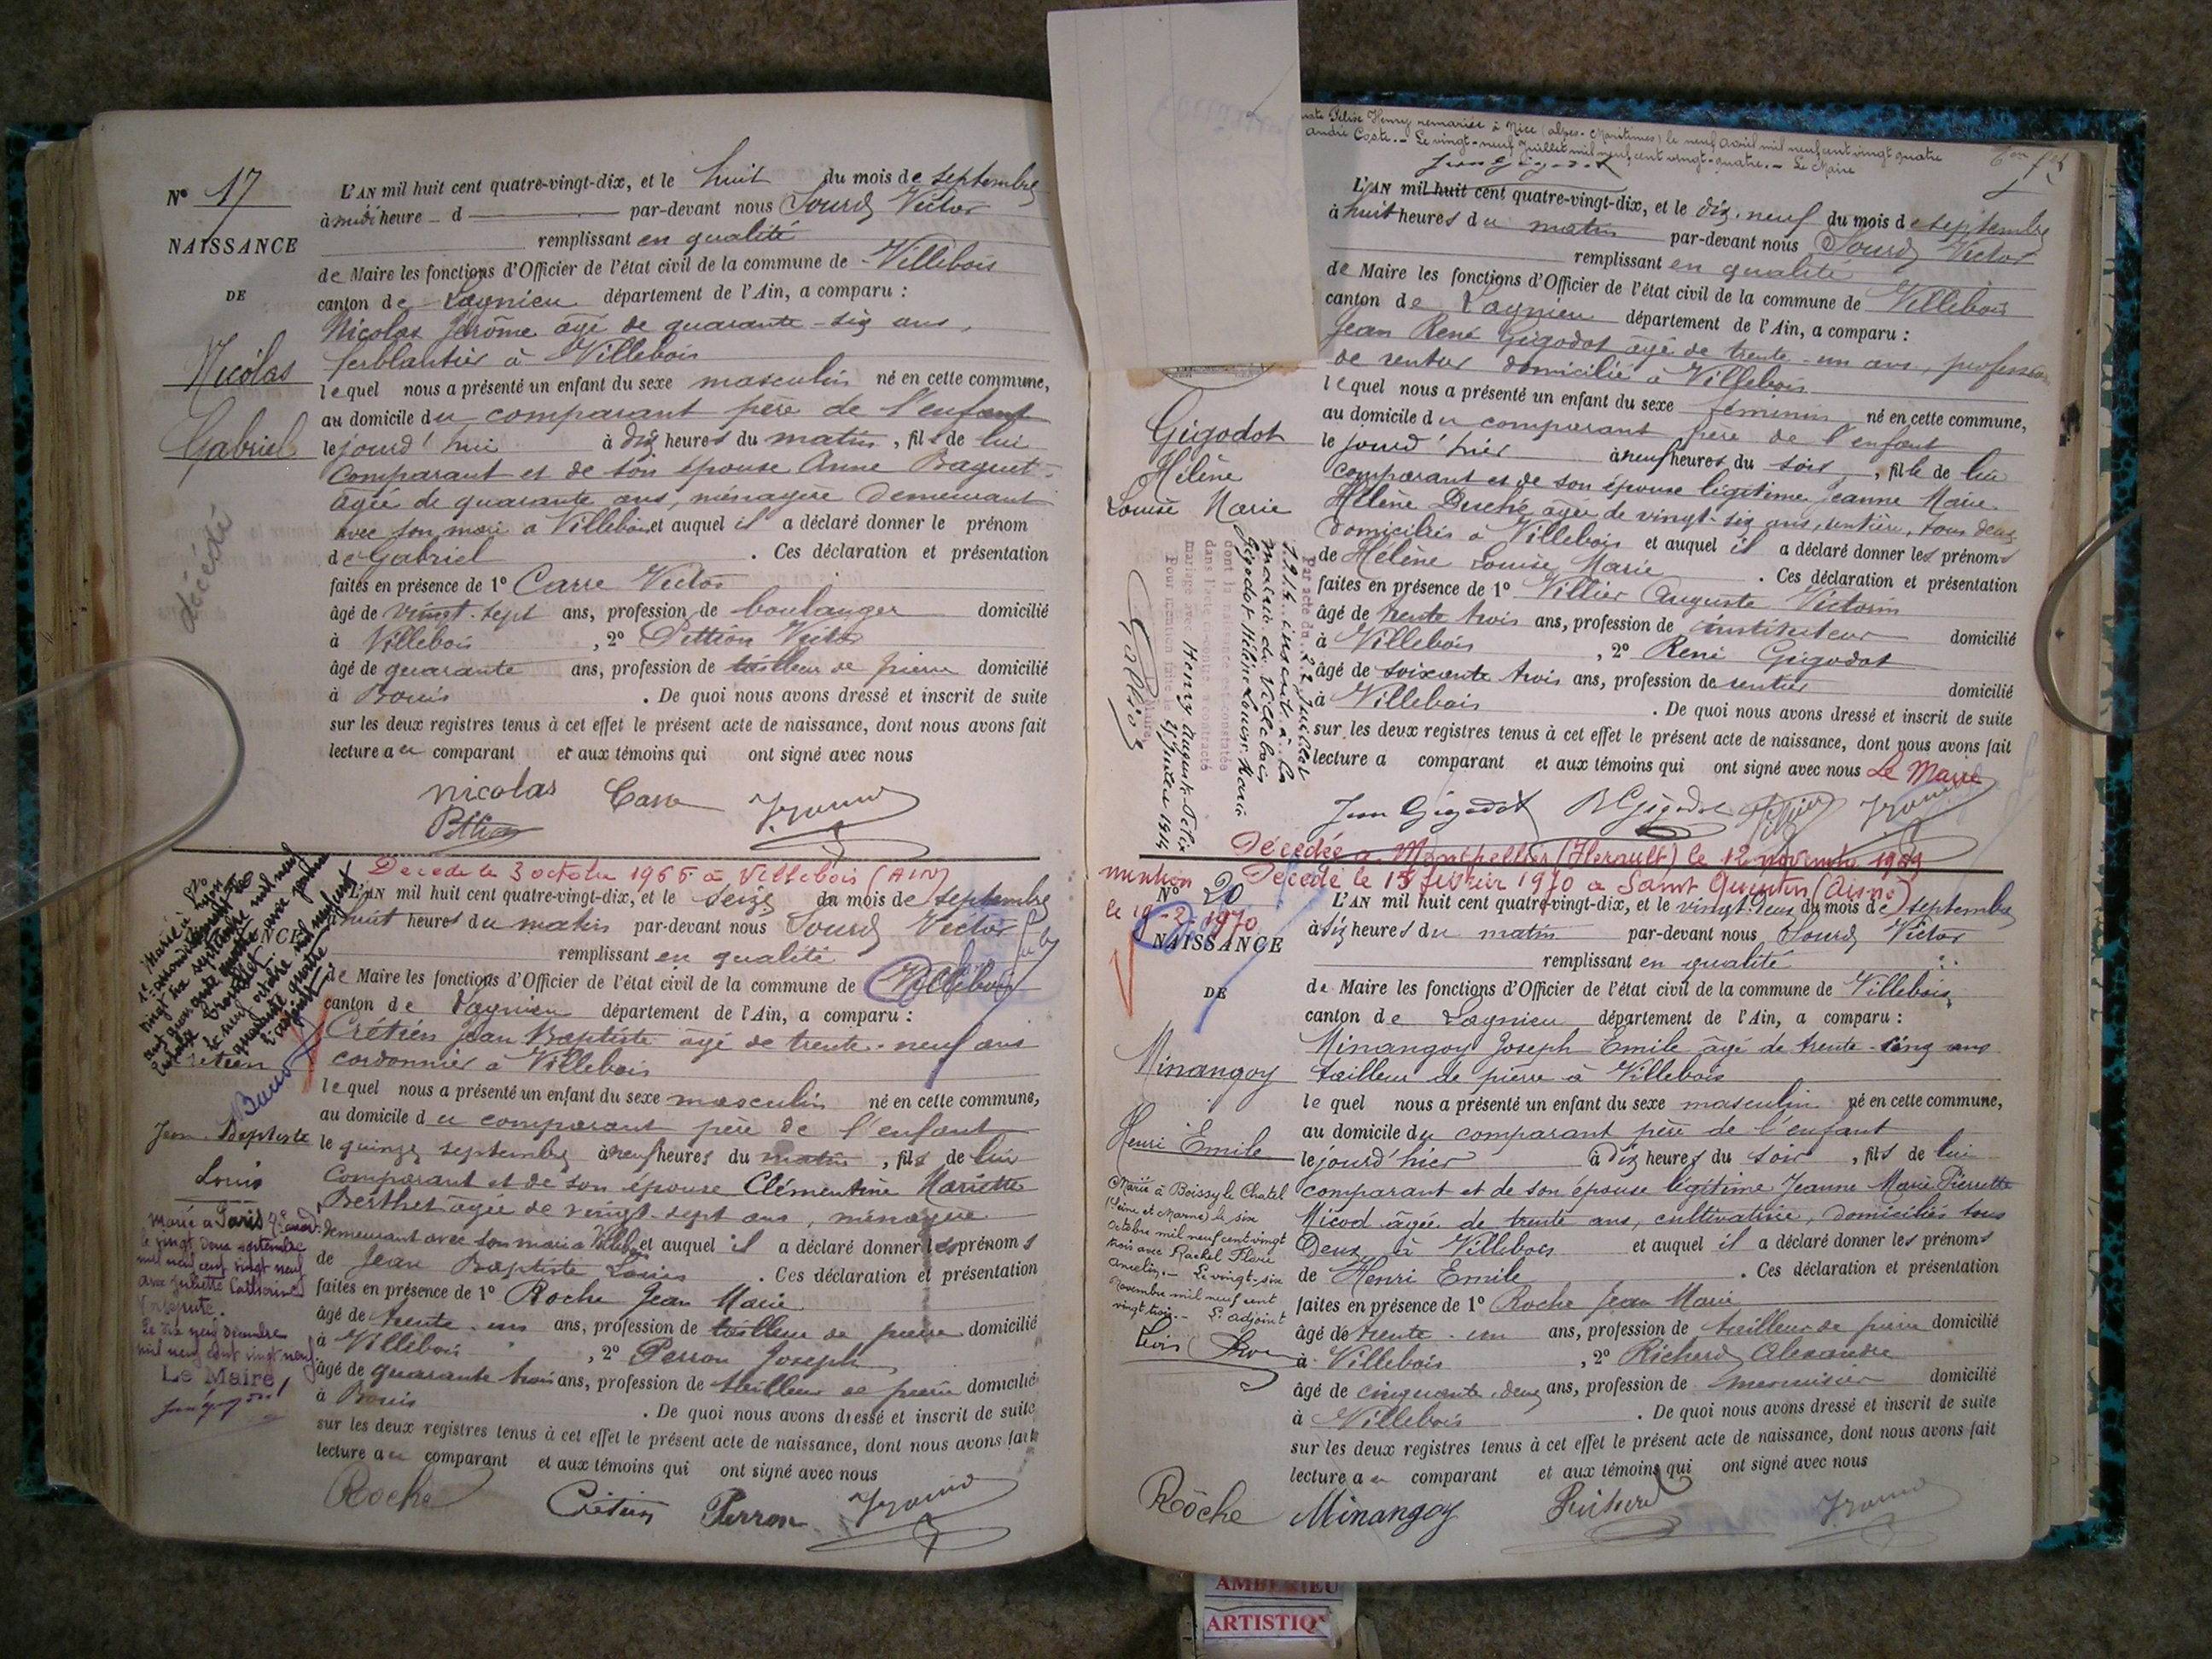 N° 17
NAISSANCE
DE
Nicolas
Gabriel
décédé
L'AN mil huit cent quatre-vingt-dix, et le huit du mois de septembre
à midi heure d par-devant nous Sourd Victor
remplissant en qualité
de Maire les fonctions d'Officier de l'état civil de la commune de Villebois
canton de Lagnieu département de l'Ain, a comparu :
Nicolas Jérôme âgé de quarante-six ans,
ferblantier à Villebois
lequel nous a présenté un enfant du sexe masculin né en cette commune,
au domicile du comparant père de l'enfant
le jourd'hui à dix heures du matin, fils de lui
comparant et de son épouse Anne Baguet
âgée de quarante ans, ménagère demeurant
avec son mari à Villebois et auquel il a déclaré donner le prénom
de Gabriel . Ces déclaration et présentation
faites en présence de 1° Carre Victor
âgé de vingt-sept ans, profession de boulanger domicilié
à Villebois , 2° Pettion Victor
âgé de quarante ans, profession de tailleur de pierre domicilié
à Bouis . De quoi nous avons dressé et inscrit de suite
sur les deux registres tenus à cet effet le présent acte de naissance, dont nous avons fait
lecture au comparant et aux témoins qui ont signé avec nous
Nicolas Carre
Décédé le 3 octobre 1965 à Villebois (AIN)
Jean-Baptiste
Louis
marié à Paris
le vingt deux septembre
mil neuf cent vingt neuf
avec Juliette Catherine
Le dix neuf décembre
mil neuf cent vingt neuf
Le Maire
L'AN mil huit cent quatre-vingt-dix, et le seize du mois de septembre
huit heures du matin par-devant nous Sourd Victor
remplissant en qualité
de Maire les fonctions d'Officier de l'état civil de la commune de Villebois
canton de Lagnieu département de l'Ain, a comparu :
Crétien Jean Baptiste âgé de trente-neuf ans
cordonnier à Villebois
lequel nous a présenté un enfant du sexe masculin né en cette commune,
au domicile du comparant père de l'enfant
le quinze septembre à neuf heures du matin , fils de lui
comparant et de son épouse Clémentine Mariette
Berthet âgée de vingt-sept ans, ménagère
demeurant avec son mari à Villeb. et auquel il a déclaré donner les prénoms
de Jean Baptiste Louis . Ces déclaration et présentation
faites en présence de 1° Roche Jean Marie
âgé de trente-un ans, profession de tailleur de pierre domicilié
à Villebois , 2° Perron Joseph
âgé de quarante trois ans, profession de tailleur de pierre domicilié
à Bouis . De quoi nous avons dressé et inscrit de suite
sur les deux registres tenus à cet effet le présent acte de naissance, dont nous avons fait
lecture au comparant et aux témoins qui ont signé avec nous
Roche Crétien Perron
Félix Henry remariée à Nice (Alpes-Maritimes) le neuf avril mil neuf cent vingt quatre
André Coste.- Le vingt-neuf Juillet mil neuf cent vingt-quatre.- Le Maire
Gigodot
Hélène
Louise Marie
Par acte du 22 Juillet
1914 inscrit à la
mairie de Villebois
Gigodot Hélène Louise Marie
dont la naissance est constatée
dans l'acte ci-contre a contracté
mariage avec Henry Auguste Félix
L'AN mil huit cent quatre-vingt-dix, et le dix-neuf du mois de septembre
à huit heures du matin par-devant nous Sourd Victor
remplissant en qualité
de Maire les fonctions d'Officier de l'état civil de la commune de Villebois
canton de Lagnieu département de l'Ain, a comparu :
Jean René Gigodot âgé de trente-un ans, profession
de rentier domicilié à Villebois
lequel nous a présenté un enfant du sexe féminin né en cette commune,
au domicile du comparant père de l'enfant
le jourd'hier à neuf heures du soir , fille de lui
comparant et de son épouse légitime Jeanne Marie
Hélène Duché âgée de vingt-six ans, rentière, tous deux
domiciliés à Villebois et auquel il a déclaré donner les prénoms
de Hélène Louise Marie . Ces déclaration et présentation
faites en présence de 1° Villier Auguste Victorin
âgé de trente trois ans, profession de instituteur domicilié
à Villebois , 2° René Gigodot
âgé de soixante trois ans, profession de rentier domicilié
à Villebois . De quoi nous avons dressé et inscrit de suite
sur les deux registres tenus à cet effet le présent acte de naissance, dont nous avons fait
lecture a comparant et aux témoins qui ont signé avec nous Le Maire
Jean Gigodot R Gigodot
Décédée à Montpellier (Hérault) le 12 novembre 1969
mention Décédé le 15 février 1970 à Saint Quentin (Aisne)
le 19-2-1970
N° 20
NAISSANCE
DE
Minangoy
Henri Emile
Marié à Boissy le Chatel
(Seine et Marne) le six
octobre mil neuf cent vingt
trois avec Rachel Flore
Ancelin.- Le vingt-six
Novembre mil neuf cent
vingt trois.- L'adjoint
L'AN mil huit cent quatre-vingt-dix, et le vingt-deux du mois de septembre
à six heures du matin par-devant nous Sourd Victor
remplissant en qualité
de Maire les fonctions d'Officier de l'état civil de la commune de Villebois
canton de Lagnieu département de l'Ain, a comparu :
Minangoy Joseph Emile âgé de trente-cinq ans
tailleur de pierre à Villebois
le quel nous a présenté un enfant du sexe masculin né en cette commune,
au domicile du comparant père de l'enfant
le jourd'hier à dix heures du soir , fils de lui
comparant et de son épouse légitime Jeanne Marie Pierrette
Micod âgée de trente ans, cultivatrice, domiciliés tous
deux à Villebois et auquel il a déclaré donner les prénoms
de Henri Emile . Ces déclaration et présentation
faites en présence de 1° Roche Jean Marie
âgé de trente-un ans, profession de tailleur de pierre domicilié
à Villebois , 2° Richerd Alexandre
âgé de cinquante-deux ans, profession de menuisier domicilié
à Villebois . De quoi nous avons dressé et inscrit de suite
sur les deux registres tenus à cet effet le présent acte de naissance, dont nous avons fait
lecture au comparant et aux témoins qui ont signé avec nous
Roche Minangoy Richerd
AMBERIEU
ARTISTIQ